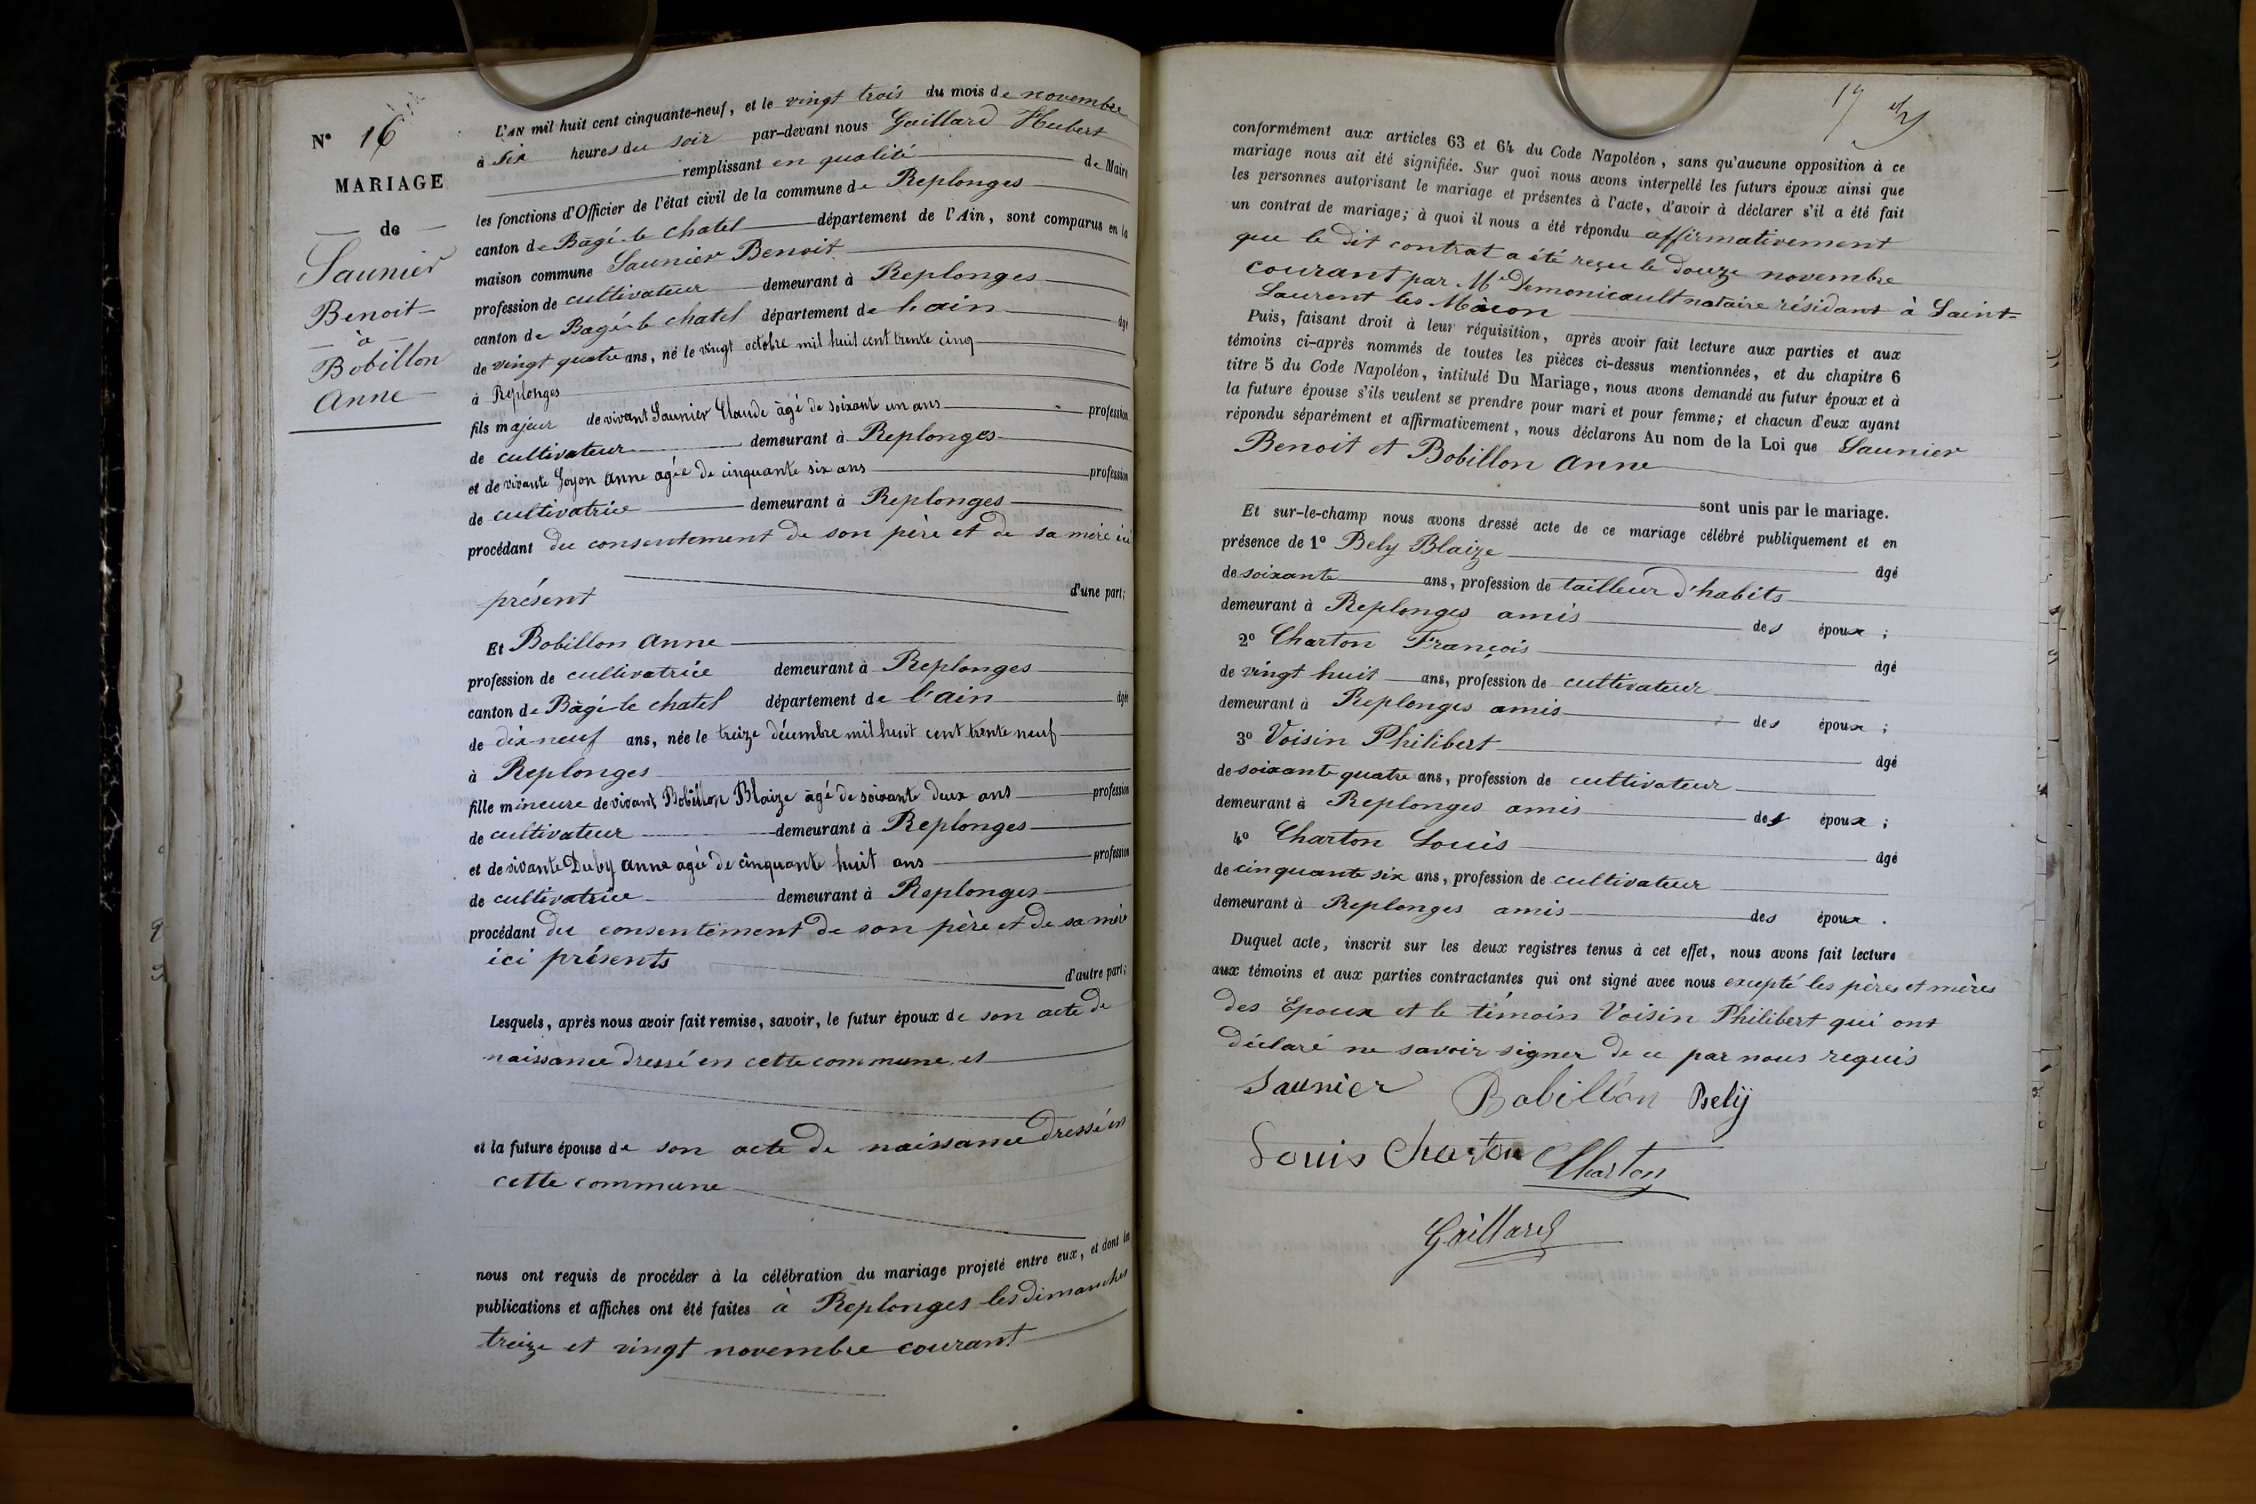 N° 16
MARIAGE
de
Saunier
Benoit
à
Bobillon
Anne
L'AN mil huit cent cinquante-neuf, et le vingt trois du mois de novembre
à six heures du soir par-devant nous Gaillard Hubert
remplissant en qualité de Maire
les fonctions d'Officier de l'état civil de la commune de Replonges
canton de Bâgé-le chatel département de l'Ain, sont comparus en la
maison commune Saunier Benoit
profession de cultivateur demeurant à Replonges
canton de Bagé-le chatel département de l'ain âgé
de vingt quatre ans, né le vingt octobre mil huit cent trente cinq
à Replonges
fils majeur de vivant Saunier Claude âgé de soixante un ans profession
de cultivateur demeurant à Replonges
et de vivante Goyon Anne agée de cinquante six ans profession
de cultivatrice demeurant à Replonges
procédant du consentement de son père et de sa mère ici
présent d'une part;
Et Bobillon Anne
profession de cultivatrice demeurant à Replonges
canton de Bâgé-le chatel département de l'ain âgée
de dix neuf ans, née le treize décembre mil huit cent trente neuf
à Replonges
fille mineure de vivant Bobillon Blaize âgé de soixante deux ans profession
de cultivateur demeurant à Replonges
et de vivante Duby Anne agée de cinquante huit ans profession
de cultivatrice demeurant à Replonges
procédant du consentement de son père et de sa mère
ici présents d'autre part;
Lesquels, après nous avoir fait remise, savoir, le futur époux de son acte de
naissance dressé en cette commune et
et la future épouse de son acte de naissance dressé en
cette commune
nous ont requis de procéder à la célébration du mariage projeté entre eux, et dont les
publications et affiches ont été faites à Replonges les dimanches
treize et vingt novembre courant
17
conformément aux articles 63 et 64 du Code Napoléon, sans qu'aucune opposition à ce
mariage nous ait été signifiée. Sur quoi nous avons interpellé les futurs époux ainsi que
les personnes autorisant le mariage et présentes à l'acte, d'avoir à déclarer s'il a été fait
un contrat de mariage; à quoi il nous a été répondu affirmativement
que le dit contrat a été reçu le douze novembre
courant par Me Demonicault notaire résidant à Saint-
Laurent les Mâcon
Puis, faisant droit à leur réquisition, après avoir fait lecture aux parties et aux
témoins ci-après nommés de toutes les pièces ci-dessus mentionnées, et du chapitre 6
titre 5 du Code Napoléon, intitulé Du Mariage, nous avons demandé au futur époux et à
la future épouse s'ils veulent se prendre pour mari et pour femme; et chacun d'eux ayant
répondu séparément et affirmativement, nous déclarons Au nom de la Loi que Saunier
Benoit et Bobillon Anne
sont unis par le mariage.
Et sur-le-champ nous avons dressé acte de ce mariage célébré publiquement et en
présence de 1° Bely Blaize âgé
de soixante ans, profession de tailleur d'habits
demeurant à Replonges amis des époux ;
2° Charton François âgé
de vingt huit ans, profession de cultivateur
demeurant à Replonges amis des époux ;
3° Voisin Philibert âgé
de soixante quatre ans, profession de cultivateur
demeurant à Replonges amis des époux ;
4° Charton Louis âgé
de cinquante six ans, profession de cultivateur
demeurant à Replonges amis des époux .
Duquel acte, inscrit sur les deux registres tenus à cet effet, nous avons fait lecture
aux témoins et aux parties contractantes qui ont signé avec nous excepté les pères et mères
des Epoux et le témoin Voisin Philibert qui ont
déclaré ne savoir signer de ce par nous requis
Saunier Bobillon Bely
Louis Charton Charton
Gaillard